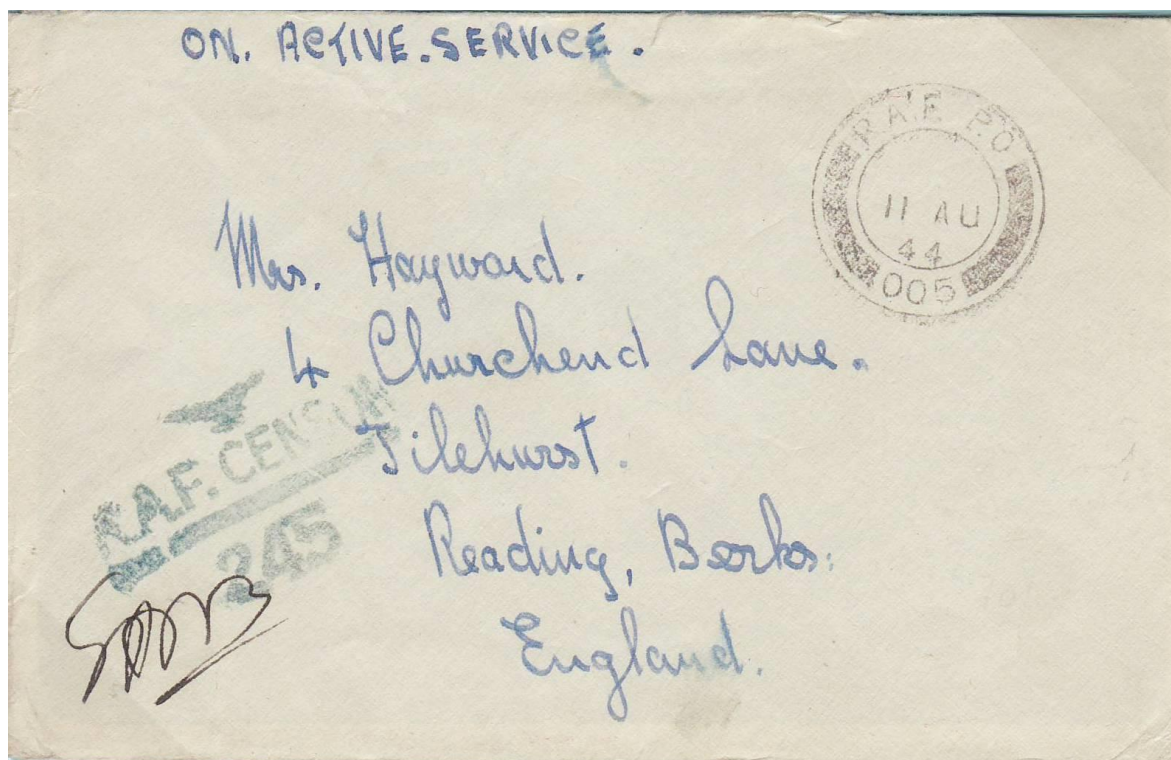 ON. ACTIVE.SERVICE.
R.A.F. P.O
11 AU
44
005
Mrs. Hayward.
4 Churchend Lane.
Tilehurst.
Reading, Berks:
England.
R.A.F. CENSOR
245